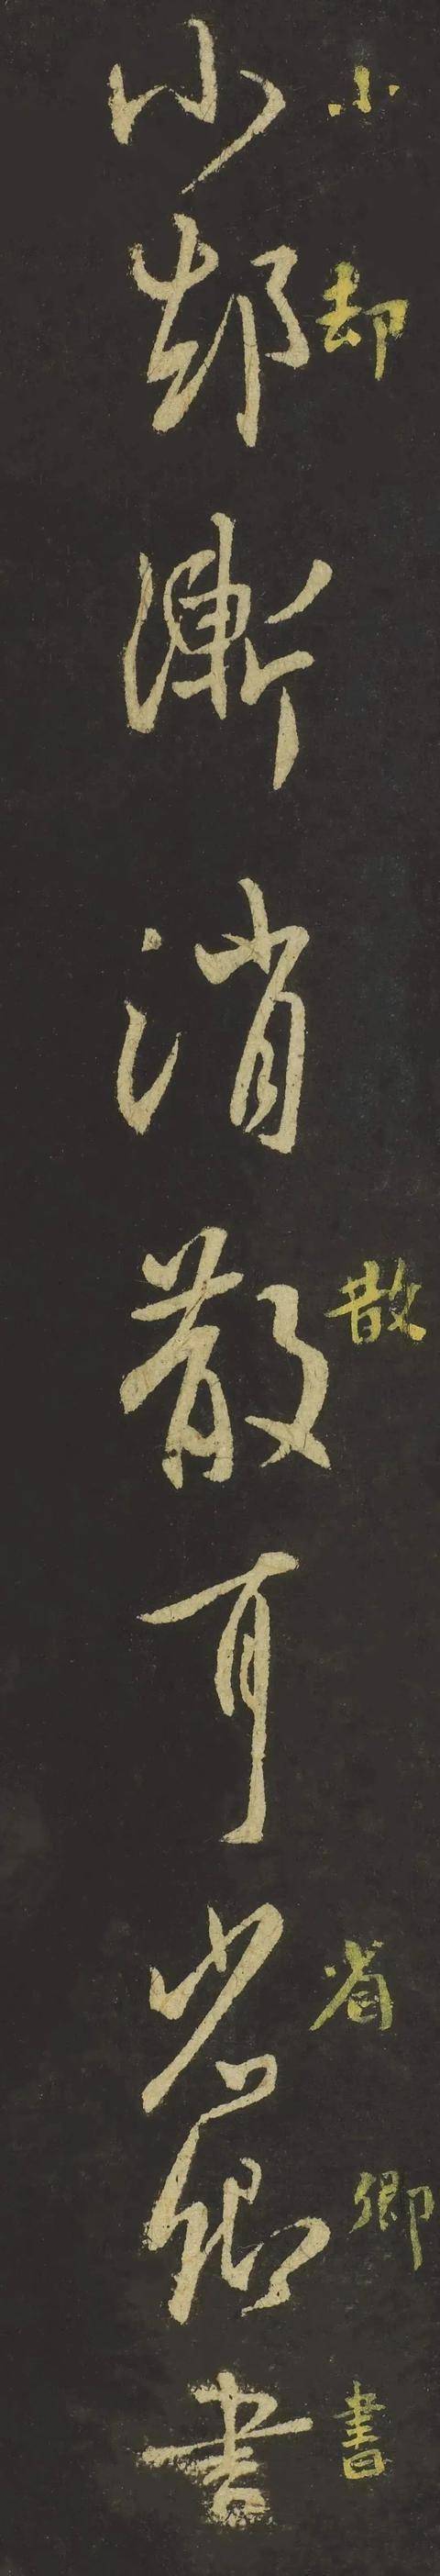 小却漸消散耳省卿書
小却散省卿書